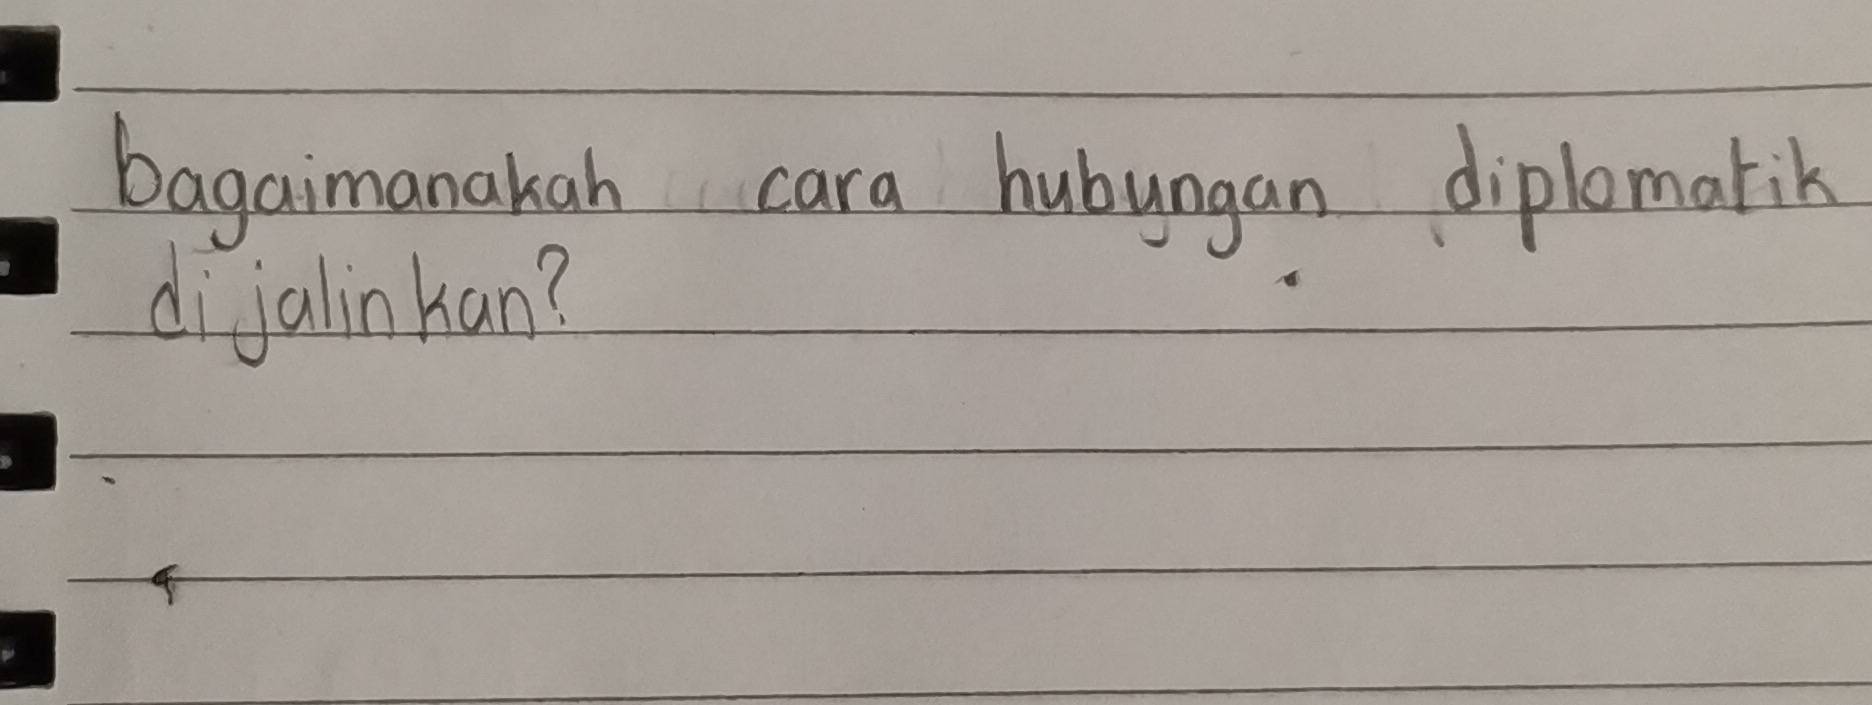 bagaimanakah cara hubungan diplomatik
dijalinkan?